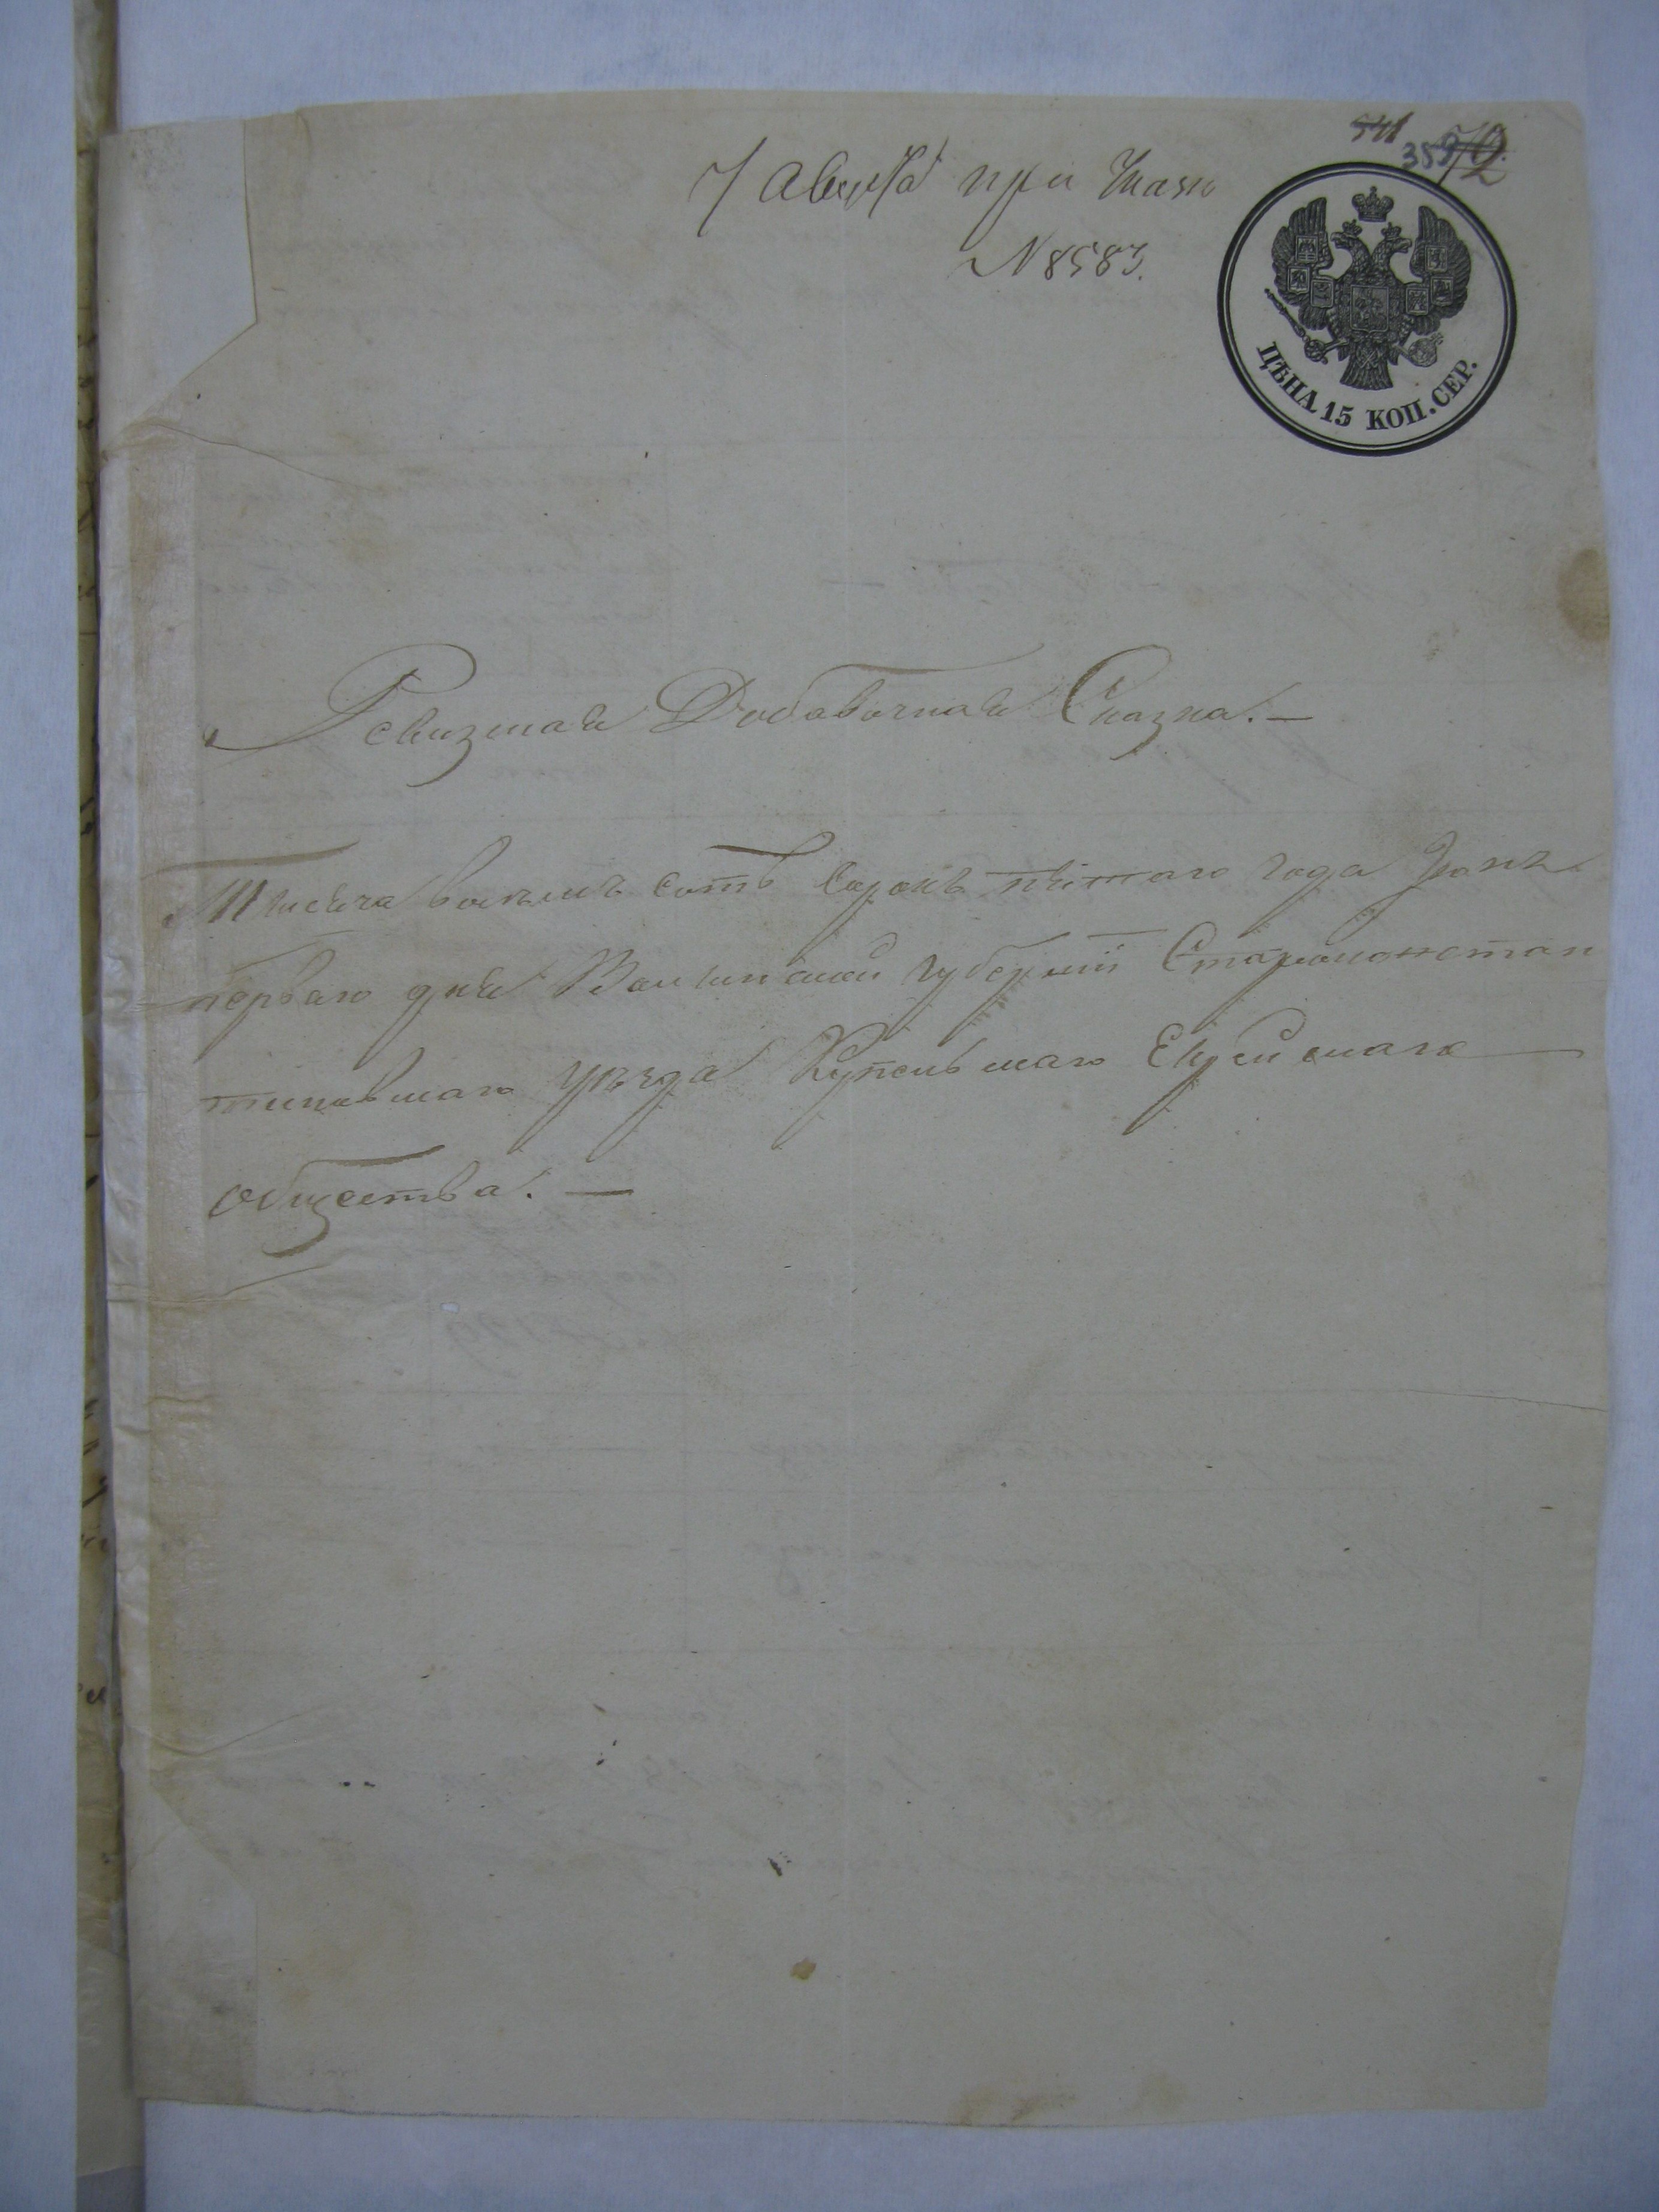 541
359
7 Августа при Указѣ
N 8583.
ЦѢНА 15 КОП. СЕР.
Ревизная Добавочная Сказка.—
Тысяча восемь сотъ сорокъ пятаго года
перваго дня Волынской губерніи Старококонстан
тиновскаго уѣзда Купельскаго Еврейскаго
общества.—